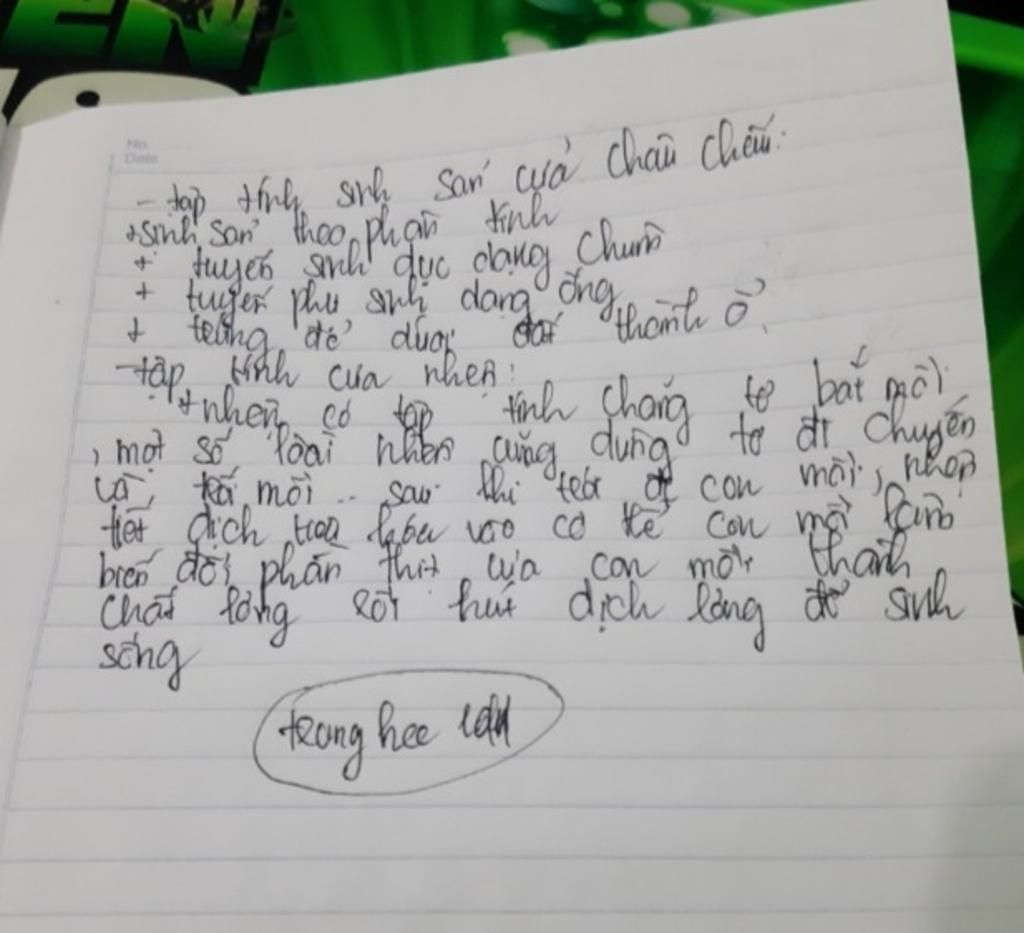 EN
No.
Date
- tập tính sinh sản của châu chấu:
+ sinh sản theo phân tính
+ tuyến sinh dục dạng chùm
+ tuyến phụ sinh dạng ống
+ trứng đẻ dưới đất thành ổ.
- tập tính của nhện:
+ nhện có tập tính chăng tơ bắt mồi
, một số loài nhện cũng dùng tơ di chuyển
và mồi .. sau khi con mồi, nhện
tiết dịch tiêu hóa vào cơ thể con mồi làm
biến đổi phần thịt của con mồi thành
chất lỏng rồi hút dịch lỏng để sinh
sống
trung hee